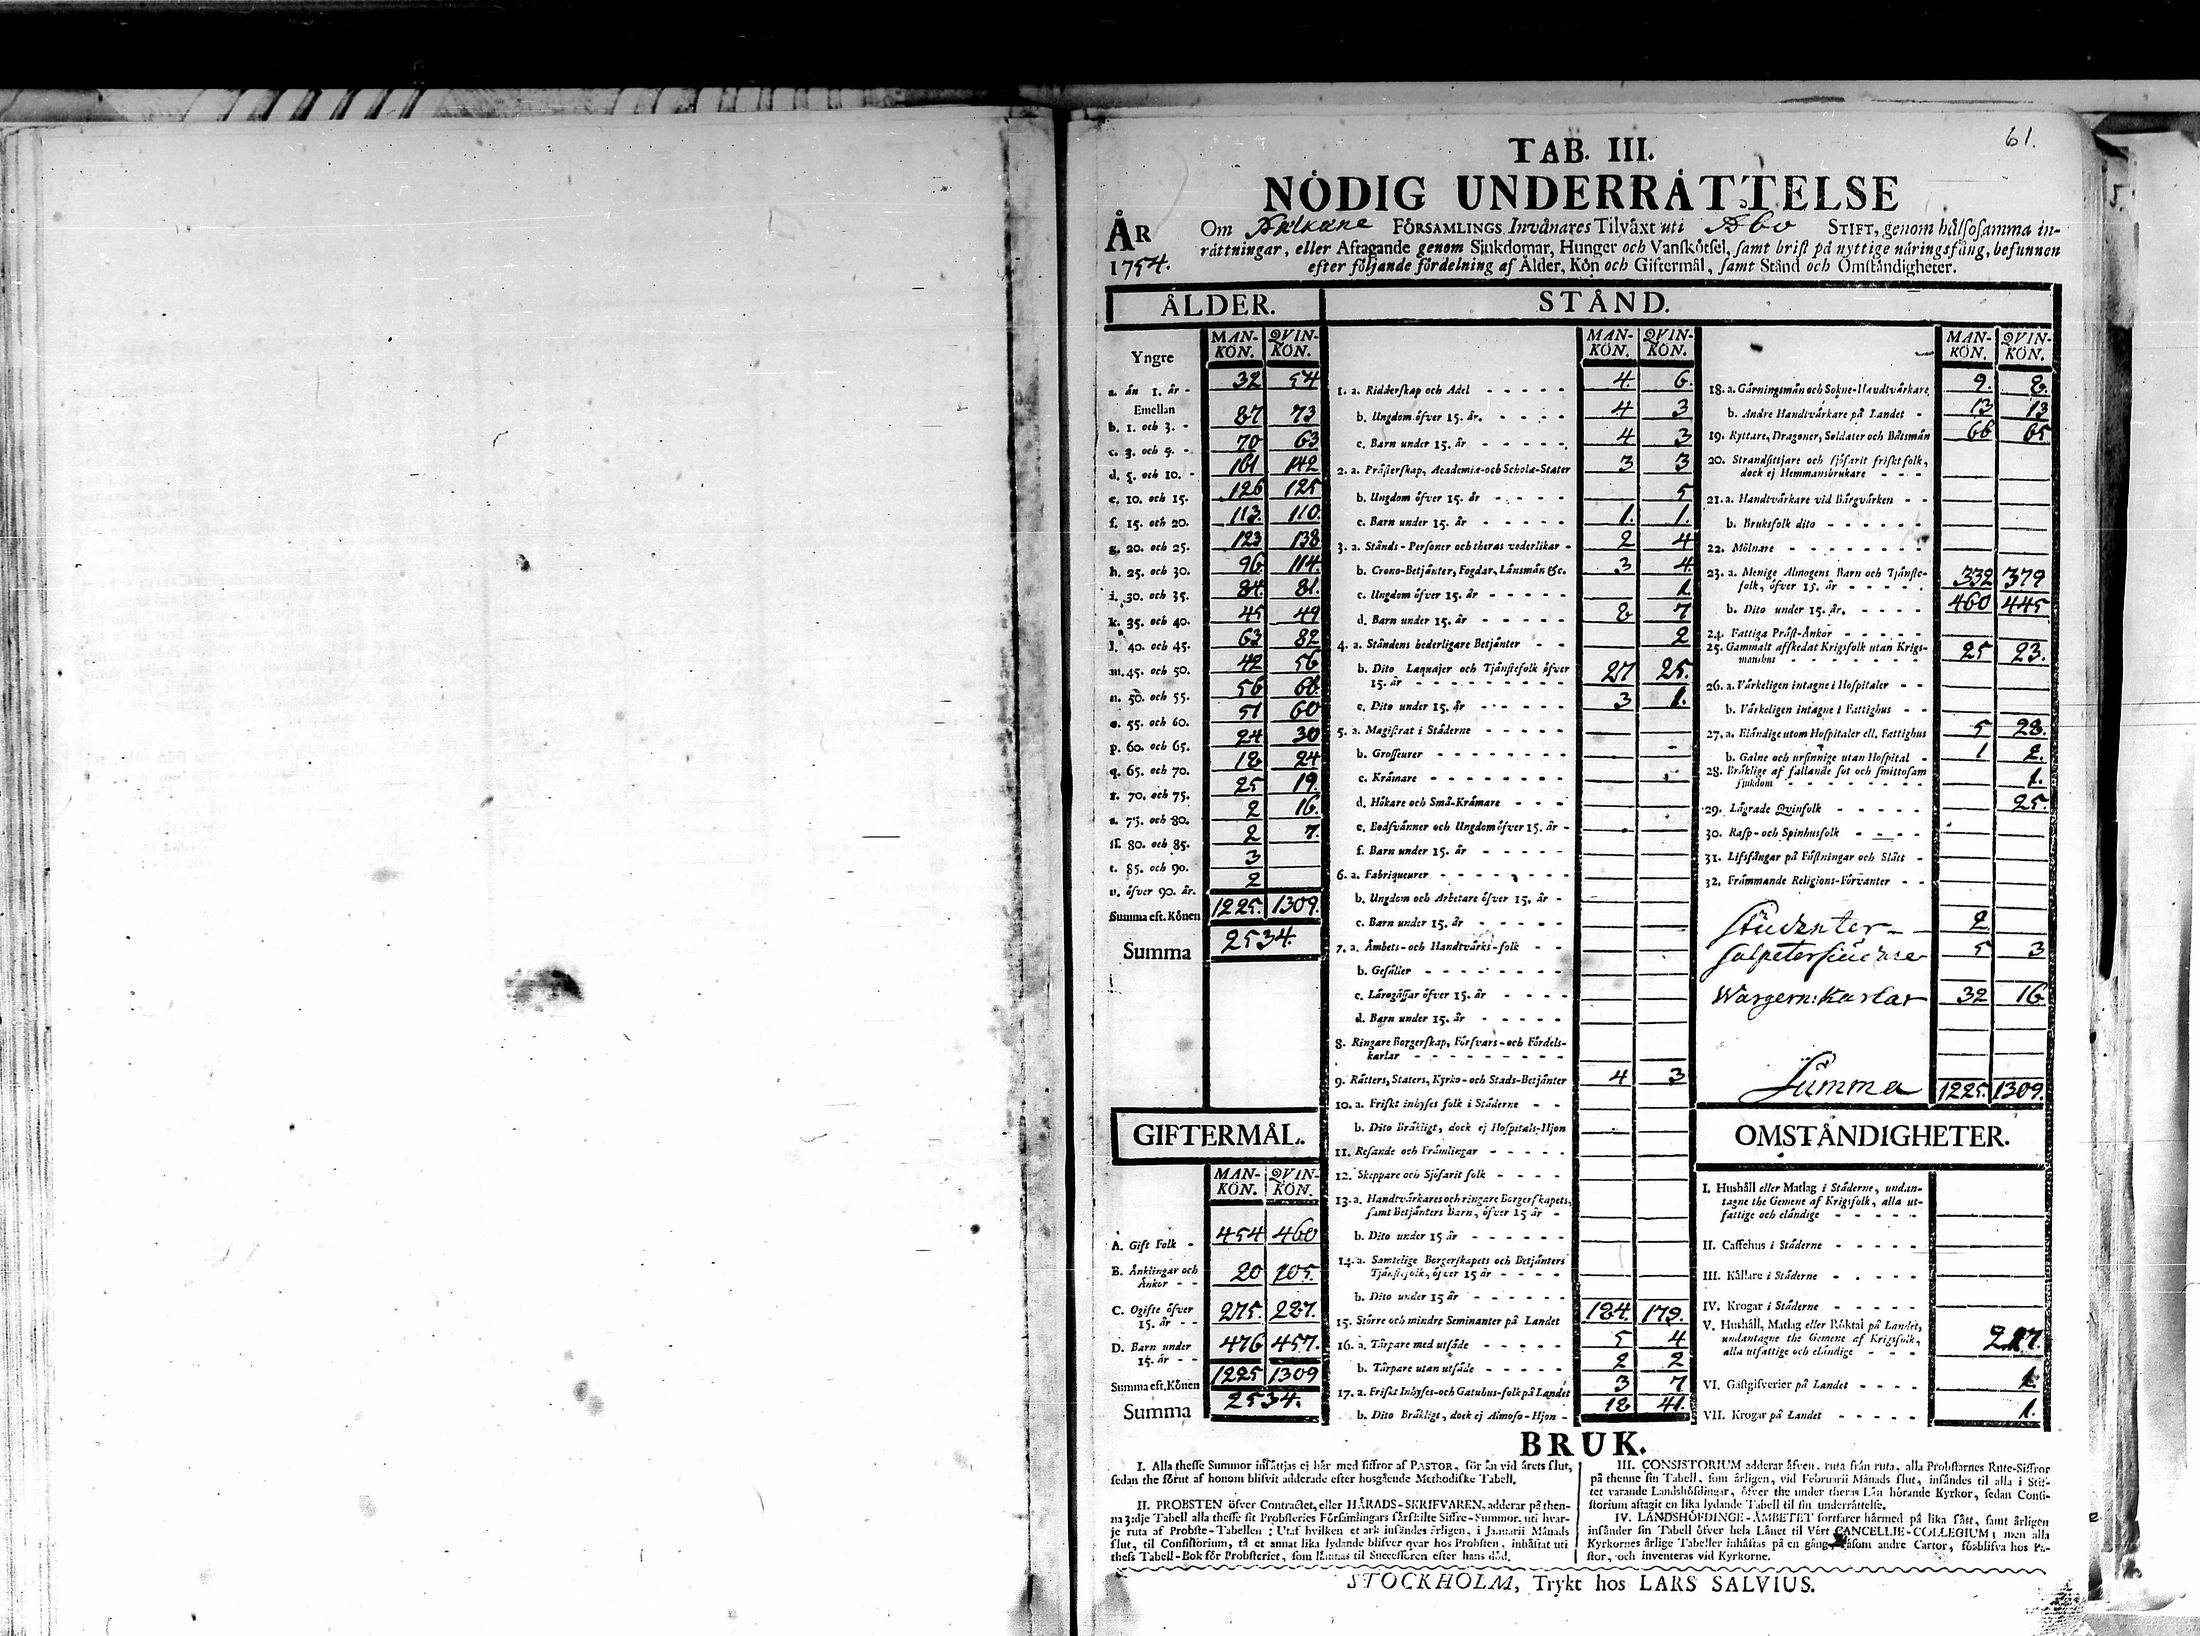 61.
TAB. III.
NÖDIG UNDERRÄTTELSE
ÅR 1754.
Om FÖRSAMLINGS Invånares Tilväxt uti Åbo STIFT, genom hålsosamma in-
råttningar, eller Aftagande genom Sjukdomar, Hunger och Vanskötsel, samt brist på nyttige näringsfång, befunnen
efter följande fördelning af Ålder, Kön och Giftermål, samt Stånd och Omständigheter.
ÅLDER.
MAN-KÖN. QVIN-KÖN.
Yngre
a. än 1. år - 32 54
Emellan
b. 1. och 3. - 87 73
c. 3. och 5. - 70 63
d. 5. och 10. - 161 142
e. 10. och 15. 126 125
f. 15. och 20. 113. 110.
g. 20. och 25. 123 138
h. 25. och 30. 96 114.
i. 30. och 35. 84. 81.
k. 35. och 40. 45 49
l. 40. och 45. 63 82
m. 45. och 50. 42 56
n. 50. och 55. 56 66
o. 55. och 60. 51 60
p. 60. och 65. 24 30
q. 65. och 70. 18 24
r. 70. och 75. 25 19.
s. 75. och 80. 2 16.
ss. 80. och 85. 2 7.
t. 85. och 90. 3
v. öfver 90. år. 2
Summa eft. Könen 1225. 1309.
Summa 2534.
GIFTERMÅL.
MAN-KÖN. QVIN-KÖN.
A. Gift Folk - 454 460
B. Änklingar och
Änkor - - 20 105.
C. Ogifte öfver
15. år - - 275. 287.
D. Barn under
15. år - - 476 457.
Summa eft. Könen 1225 1309
Summa 2534.
STÅND.
MAN-KÖN. QVIN-KÖN.
1. a. Ridderskap och Adel 4. 6.
b. Ungdom öfver 15. år. 4 3
c. Barn under 15. år 4 3
2. a. Prästerskap, Academiæ- och Scholæ-Stater 3 3
b. Ungdom öfver 15. år 5
c. Barn under 15. år 1. 1.
3. a. Stånds-Personer och theras vederlikar 2 4
b. Crono-Betjänter, Fogdar, Länsmän &c. 3 4.
c. Ungdom öfver 15. år 1
d. Barn under 15. år 8 7
4. a. Ståndens hederligare Betjänter 2
b. Dito Laquajer och Tjänstefolk öfver
15. år 27 25.
c. Dito under 15. år 3 1.
5. a. Magistrat i Städerne
b. Grosseurer
c. Krämare
d. Hökare och Små-Krämare
e. Bodsvänner och Ungdom öfver 15. år
f. Barn under 15. år
6. a. Fabriqueurer
b. Ungdom och Arbetare öfver 15. år
c. Barn under 15. år
7. a. Ämbets- och Handtvärks-folk
b. Gesäller
c. Lärogåssar öfver 15. år
d. Barn under 15. år
8. Ringare Borgerskap, Försvars- och Fördels-
karlar
9. Rätters, Staters, Kyrko- och Stads-Betjänter 4 3
10. a. Friskt inhyses folk i Städerne
b. Dito Bräkligt, dock ej Hospitals-Hjon
11. Resande och Främlingar
12. Skeppare och Sjöfarit folk
13. a. Handtvärkares och ringare Borgerskapets,
samt Betjänters Barn, öfver 15 år
b. Dito under 15 år
14. a. Samtelige Borgerskapets och Betjänters
Tjänstefolk, öfver 15 år
b. Dito under 15 år
15. Större och mindre Seminanter på Landet 184. 179.
16. a. Tärpare med utsäde 5 4
b. Tärpare utan utsäde 2 2
17. a. Friskt Inhyses- och Gatuhus-folk på Landet 3 7
b. Dito Bräkligt, dock ej Almoso-Hjon 18 41.
MAN-KÖN. QVIN-KÖN.
18. a. Gärningsmän och Sokne-Handtvärkare 9. 8.
b. Andre Handtvärkare på Landet 13 13
19. Ryttare, Dragoner, Soldater och Båtsmän 66 65
20. Strandsittjare och sjöfarit friskt folk,
dock ej Hemmansbrukare
21. a. Handtvärkare vid Bärgvärken
b. Bruksfolk dito
22. Mölnare
23. a. Menige Almogens Barn och Tjänste-
folk, öfver 15. år 332 379
b. Dito under 15. år. 460 445
24. Fattiga Präst-Änkor
25. Gammalt afskedat Krigsfolk utan Krigs-
manshus 25 23.
26. a. Värkeligen intagne i Hospitaler
b. Värkeligen intagne i Fattighus
27. a. Eländige utom Hospitaler ell. Fattighus 5 28.
b. Galne och ursinnige utan Hospital 1 2.
28. Bräklige af fallande sot och smittosam
sjukdom 1.
29. Lägrade Qvinfolk 25.
30. Rasp- och Spinhusfolk
31. Lifsfångar på Fästningar och Slått
32. Främmande Religions-Förvanter
Studenter 2
Salpetersiudare 5 3
Wargern: Karlar 32 16
Summa 1225. 1309.
OMSTÄNDIGHETER.
I. Hushåll eller Matlag i Städerne, undan-
tagne the Gemene af Krigsfolk, alla ut-
fattige och eländige
II. Caffehus i Städerne
III. Källare i Städerne
IV. Krogar i Städerne
V. Hushåll, Matlag eller Röktal på Landet,
undantagne the Gemene af Krigsfolk,
alla utfattige och eländige 217.
VI. Gästgifverier på Landet 1.
VII. Krogar på Landet 1.
BRUK.
I. Alla thesse Summor insättjas ej här med siffror af PASTOR, för än vid årets slut,
sedan the förut af honom blifvit adderade efter hosgående Methodiske Tabell.
II. PROBSTEN öfver Contractet, eller HÄRADS-SKRIFVAREN, adderar på then-
na 3:dje Tabell alla thesse sit Probsteries Församlingars särskilte Siffre-Summor, uti hvar-
je ruta af Probste-Tabellen: Utaf hvilken et ark insändes årligen, i Januarii Månads
slut, til Consistorium, tå et annat lika lydande blifver qvar hos Probsten, inhäftat uti
thess Tabell-Bok för Probsteriet, som lämnas til Successoren efter hans död.
III. CONSISTORIUM adderar äfven, ruta från ruta, alla Probstarnes Rute-Siffror
på thenne sin Tabell, som årligen, vid Februarii Månads slut, insändes til alla i Stif-
tet varande Landshöfdingar, öfver the under theras Län hörande Kyrkor, sedan Consi-
storium aftagit en lika lydande Tabell til sin underrättelse.
IV. LANDSHÖFDINGE-ÄMBETET fortfarer härmed på lika sätt, samt årligen
insänder sin Tabell öfver hela Länet til Vårt CANCELLIE-COLLEGIUM; men alla
Kyrkornes årlige Tabeller inhäftas på en gång, såsom andre Cartor, förblifva hos Pa-
stor, och inventeras vid Kyrkorne.
STOCKHOLM, Trykt hos LARS SALVIUS.